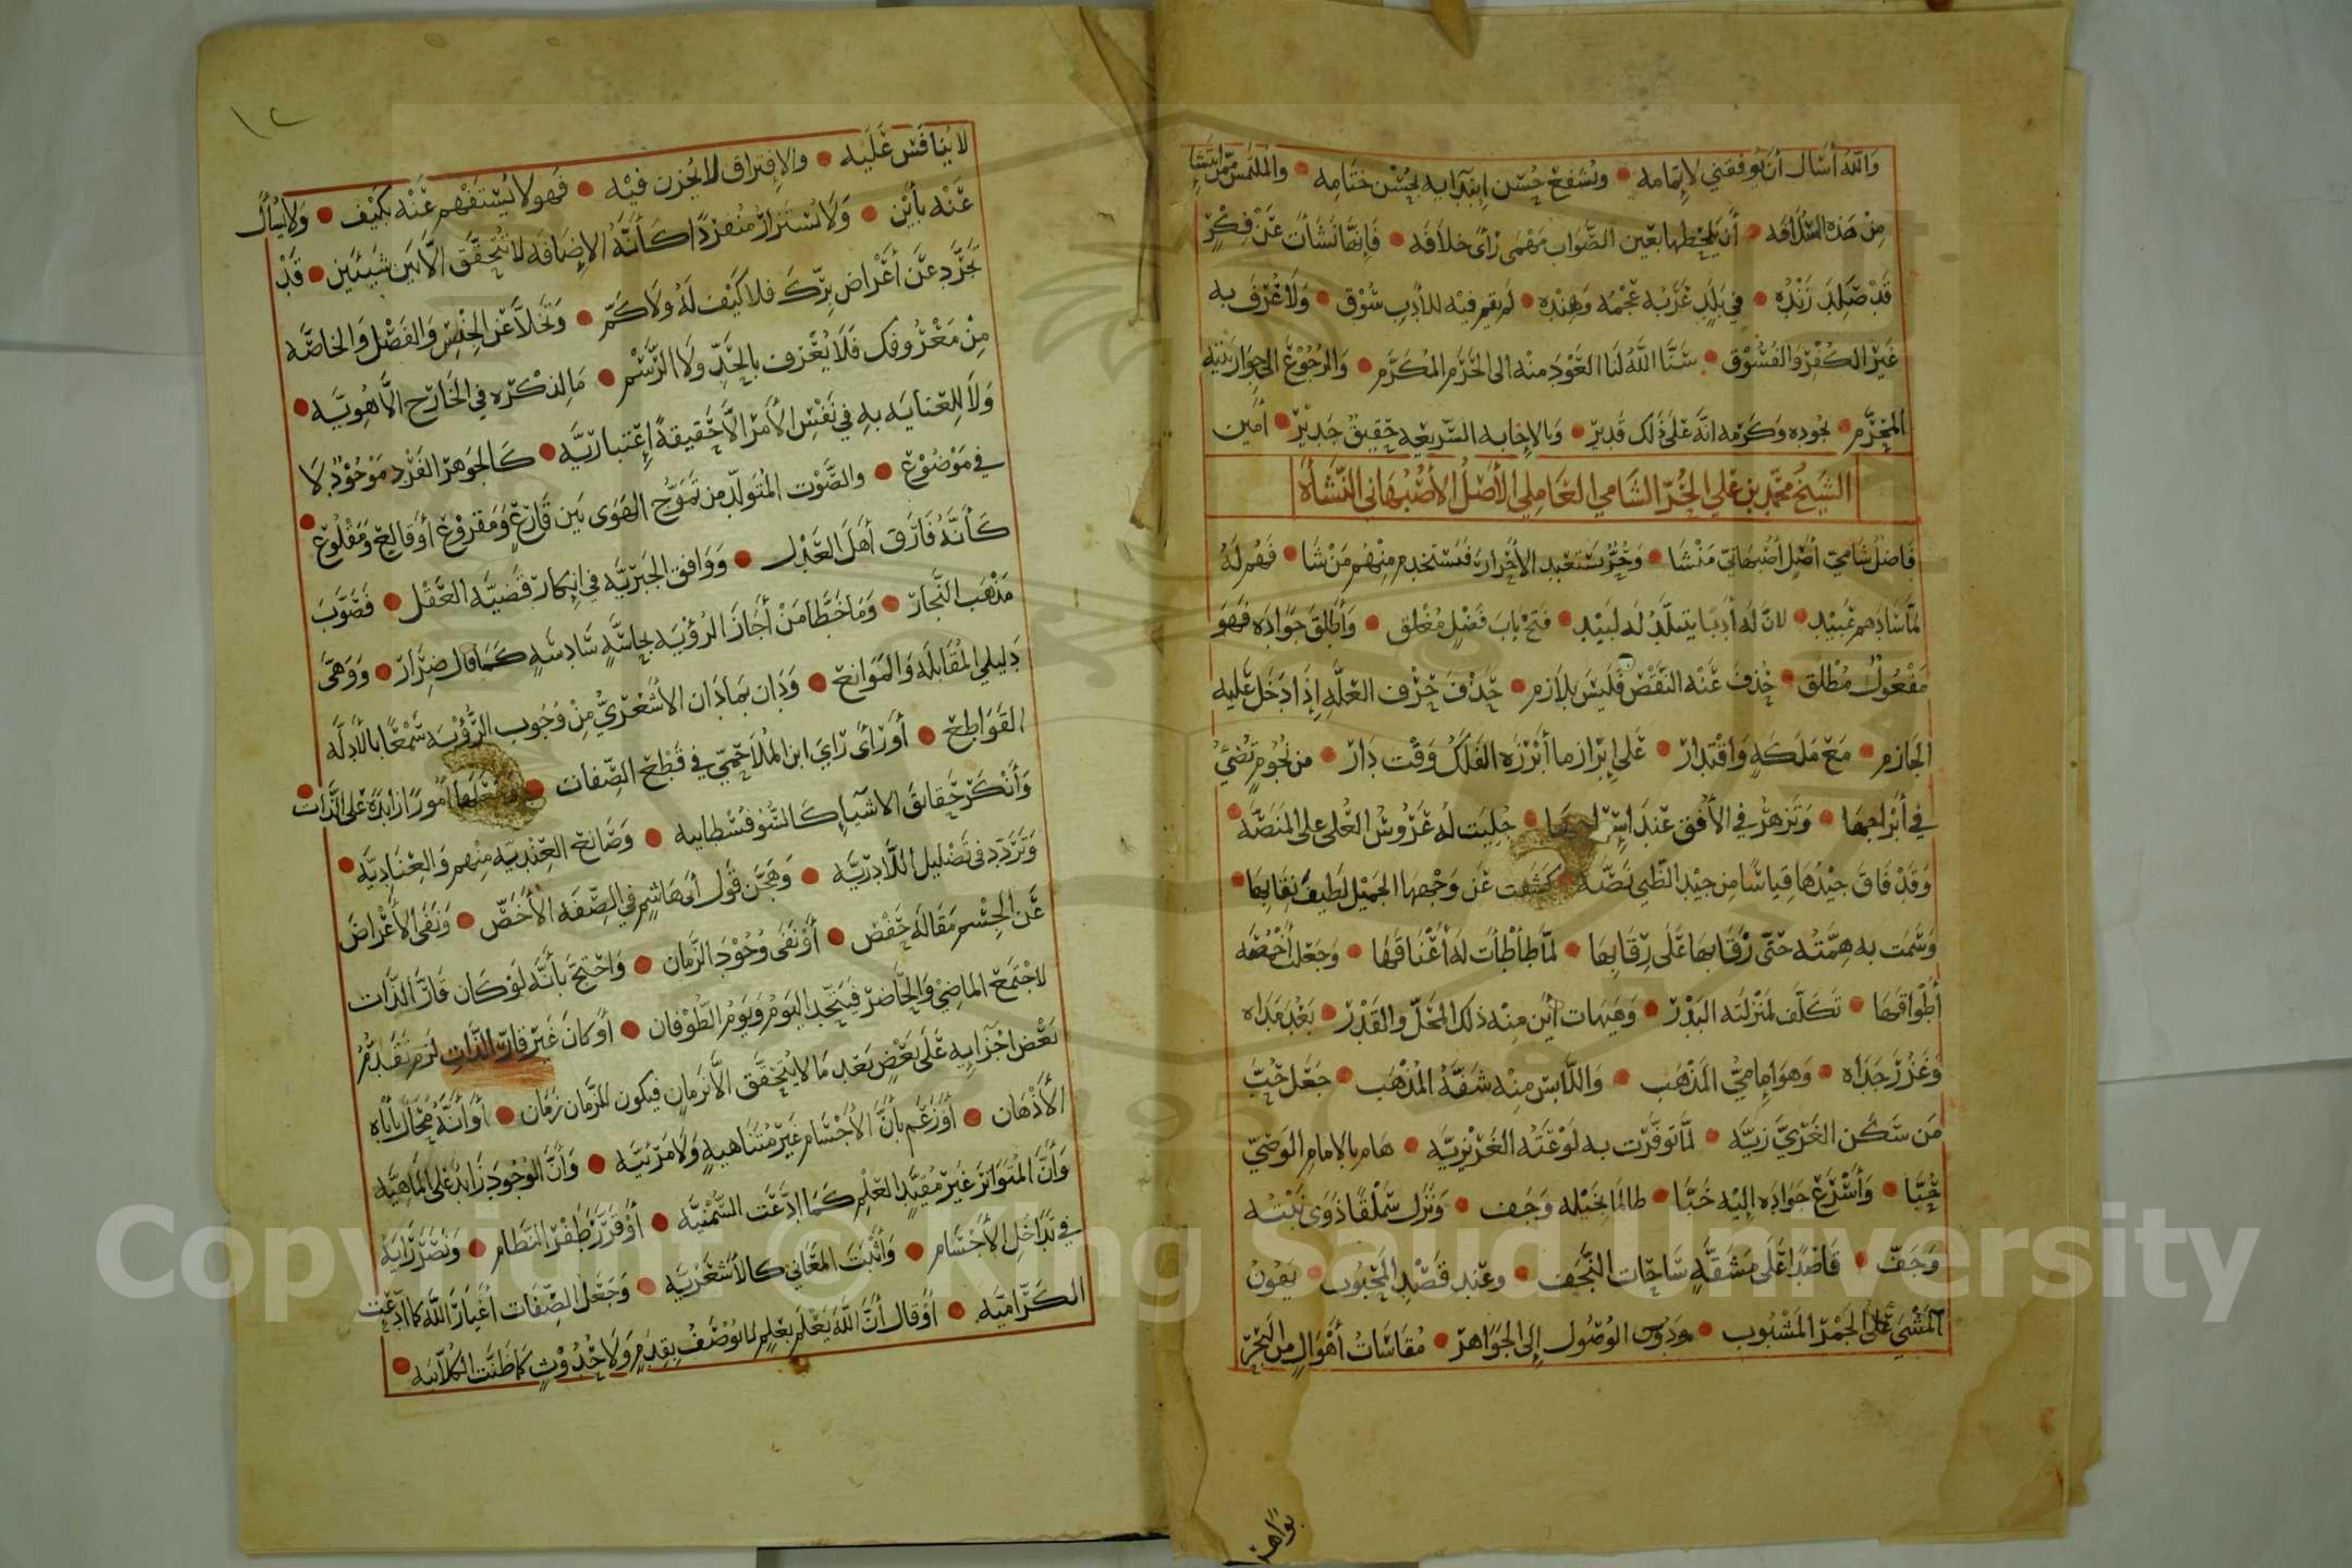 والله أسأل أن يوفقني لإتمامه • ويشفع حسن ابتدائه بحسن ختامه • والملتمس ممن انتشا
من هذه السلافه • أن يلحظها بعين الصواب مهمى رأى خلافه • فإنها نشأت عن فكر
قد صلد زنده • في بلد غربه عجمه وهنده • لم يقم فيه للأدب سوق • ولا عرف به
غير الكفر والفسوق • سنا الله لنا العود منه الى الحرم المكرم • والرجوع الى جوار بيته
المحرم • بجوده وكرمه انه على ذلك قدير • وبالإجابه السريعه حقيق جدير • أمين
الشيخ محمد بن علي الحر الشامي العاملي الأصل الأصبهاني النشأة
فاضل شامي أصل أصبهاني منشا • وحر يستعبد الأحرار فيستخدم منهم من شا • فهم له
لما سادهم عبيد • لان له أدبا يتبلد له لبيد • فتح باب فضل مغلق • وأطلق جواده فهو
مفعول مطلق • حذف عنه النقص فليس بلازم • حذف حرف العله إذا دخل عليه
الجازم • مع ملكة واقتدار • على إبراز ما أبرزه الفلك وقت دار • من نجوم تضيء
في أبراجها • وتزهر في الأفق عند • جليت له عروس العلى على المنصه •
وقد فاق جيدها قياسا من جيد الظبي نصه • كشفت عن وجهها الجميل لطيف نقابها •
وسمت به همته حتى رقابها على رقابها • لما طأطأت له أعناقها • وجعل أخمصه
أطواقها • تكلف لمنزلته البدر • وهيهات أين منه ذلك المحل والقدر • بعد مداه
وغزر جداه • وهو إمامي المذهب • واللابس منه شقة المذهب • جعل حب
من سكن الغري زيه • لما توفرت به لوعته الغريزيه • هام بالامام الوصي
حبا • وأسرع جواده إليه خبا • طالما بخيله وجف • ونزل سملقا ذوى نبته
وجف • قاصدا على مشقة ساحات النجف • وعند قصد المحبوب • يهون
المشي على الجمر المشبوب • ودون الوصول إلى الجواهر • مقاسات أهوال من البحر
بواهر
١٢
لا ينافس عليه • والإفتراق لا يحزن فيه • فهو لا يستفهم عنه بكيف • ولا يسأل
عنه بأين • ولا تستنزار منفردا كأنه الإضافه لا تتحقق الا بين شيئين • قد
تجرد عن أغراض برك فلا كيف له ولا كم • وتخلا عن الجنس والفصل والخاصه
من معروفك فلا يعرف بالحد ولا الرسم • ما لذكره في الخارج الا هويه •
ولا للعنايه به في نفس الأمر الا حقيقة إعتباريه • كالجوهر الفرد موجود لا
في موضوع • والصوت المتولد من تموج الهوى بين قارع ومقروع أو قالع ومقلوع •
كأنه فارق أهل العدل • ووافق الجبريه في إنكار قضيه العقل • فصوب
مذهب النجار • وما خطا من أجاز الرؤيه بحاسه سادسه كما قال ضرار • ووهى
دليلي المقابله والموانع • ودان بما دان الأشعري من وجوب الرؤيه سمعا بالأدله
القواطع • أو رأى رأي ابن الملاحمي في قطع الصفات • أمورا زايدة على الذات •
وأنكر حقايق الاشيآء كالسوفسطاييه • وصانع العنديه منهم والعناديه •
وتردد في تضليل اللاادريه • وهجن قول أبي هاشم في الصفه الأخص • ونفى الأغراض
عن الجسم مقالة حفص • أو نفى وجود الزمان • واحتج بأنه لو كان قار الذات
لاجتمع الماضي والحاضر فيتحد اليوم ويوم الطوفان • أو كان غير قار الذات لزم تقدم
بعض اجزايه على بعض بعد ما لا يتحقق الا بزمان فيكون للزمان زمان • أو أنه محال يأباه
الأذهان • أو زعم بأن الأجسام غير متناهيه ولا مرئيه • وأن الوجود زايد على الماهيه
وأن المتواتر غير مفيد العلم كما ادعت السمنيه • أو قرر طفر النظام • ونصر رأيه
في تداخل الأجسام • وأثبت المعاني كالأشعريه • وجعل الصفات أغيار الله كما ادعت
الكراميه • أو قال أن الله يعلم بعلم لا يوصف بقدم ولا حدوث كما ظنت الكلابيه •
Copyright © King Saud University